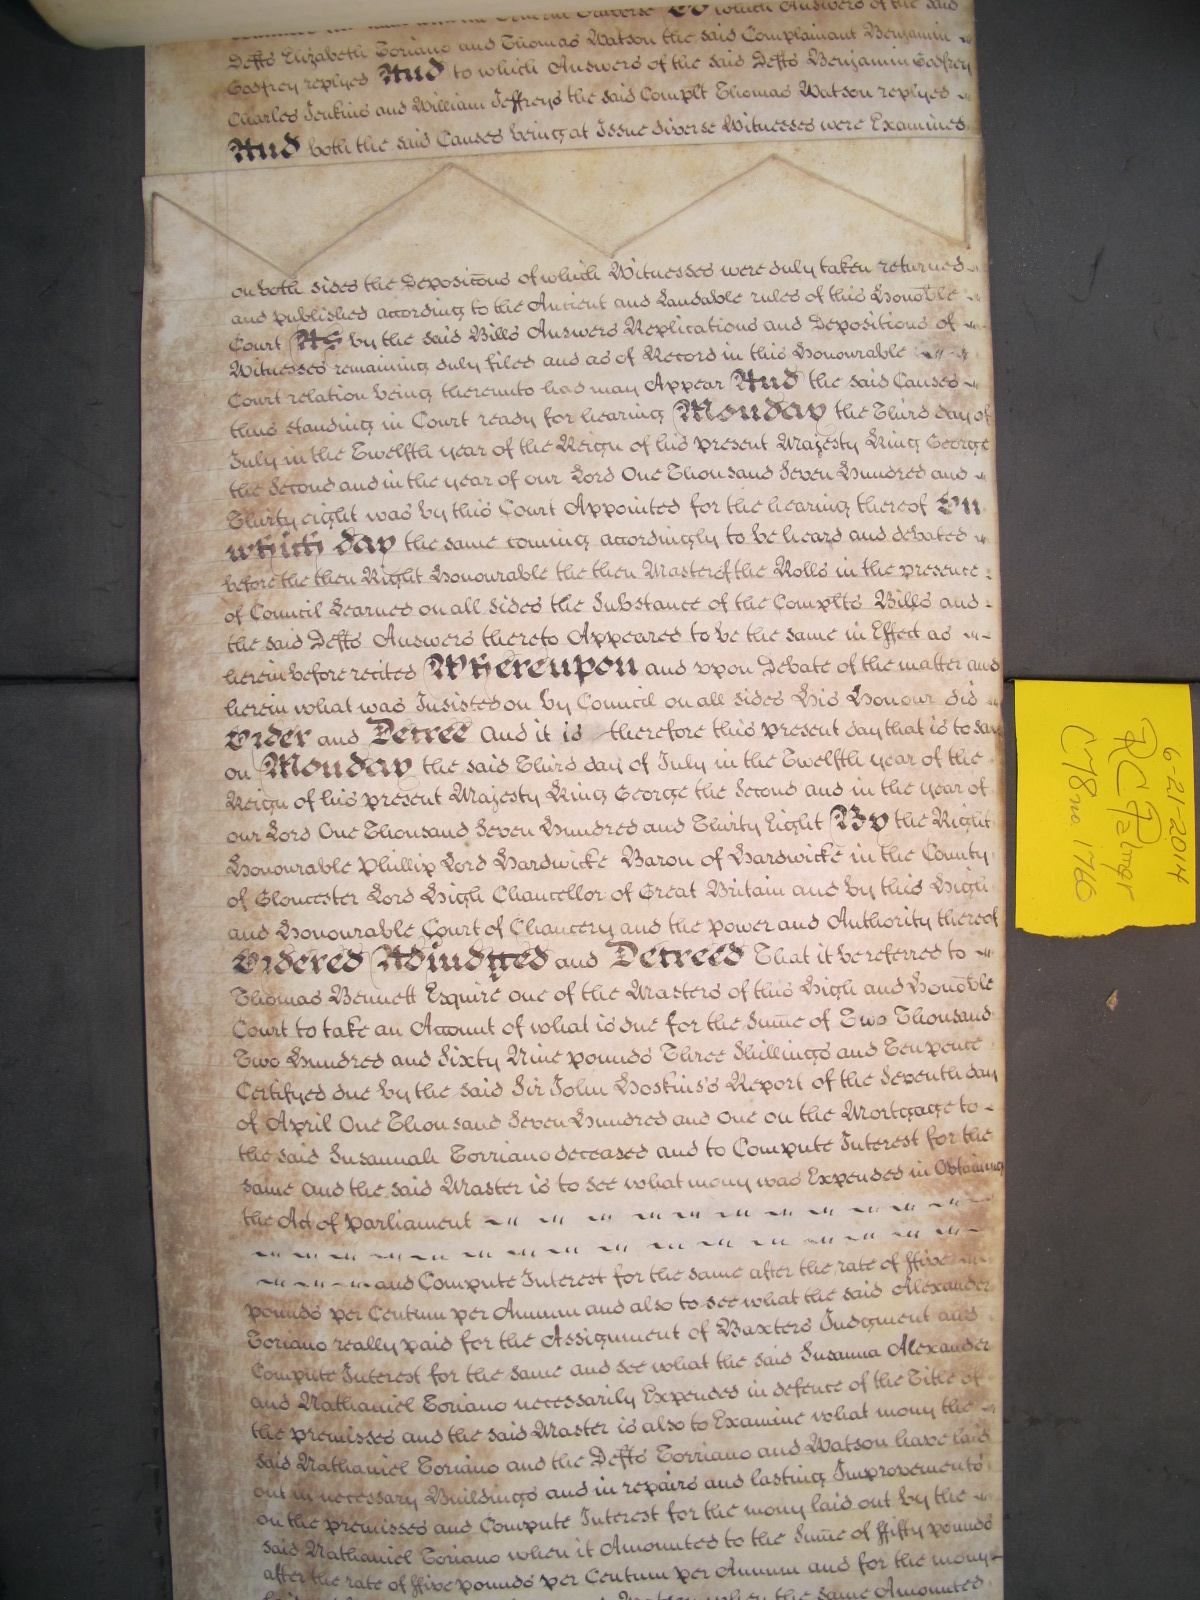 with the General Traverse To which Answers of the said
Deffts Elizabeth Toriano and Thomas Watson the said Complainant Benjamin
Godfrey replyed And to which Answers of the said Deffts Benjamin Godfrey
Charles Jenkins and William Jeffreys the said Complt Thomas Watson replyed
And both the said Causes being at Issue diverse Witnesses were Examined
on both sides the Depositons of which Witnesses were duly taken returned
and published according to the Antient and Laudable rules of this Honoble
Court As by the said Bills Answers Replications and Depositions of
Witnesses remaining duly filed and as of Record in this Honourable
Court relation being thereunto had may Appear And the said Causes
thus standing in Court ready for hearing Monday the Third day of
July in the Twelfth year of the Reign of his present Majesty King George
the Second and in the year of our Lord One Thousand Seven Hundred and
Thirty eight was by this Court Appointed for the hearing thereof On
which day the same coming accordingly to be heard and debated
before the then Right Honourable the then Master of the Rolls in the presence
of Council Learned on all sides the Substance of the Complts Bills and
the said Deffts Answers thereto Appeared to be the same in Effect as
herein before recited Whereupon and upon Debate of the matter and
herein what was Insisted on by Council on all sides His Honour did
Order and Decree and it is therefore this present day that is to say
on Monday the said Third day of July in the Twelfth year of the
Reign of his present Majesty King George the Second and in the year of
our Lord One Thousand Seven Hundred and Thirty Eight By the Right
Honourable Phillip Lord Hardwicke Baron of Hardwicke in the County
of Gloucester Lord High Chancellor of Great Britain and by this High
and Honourable Court of Chancery and the power and Authority thereof
Ordered Adjudged and Decreed That it be referred to
Thomas Bennett Esquire one of the Masters of this High and Honoble
Court to take an Account of what is due for the Sume of Two Thousand
Two Hundred and Sixty Nine pounds Three Shillings and Ten pence
Certifyed due by the said Sir John Hoskins's Report of the Seventh day
of April One Thousand Seven Hundred and One on the Mortgage to
the said Susannah Torriano deceased and to Compute Interest for the
same And the said Master is to see what mony was Expended in Obtaining
the Act of Parliament
and Compute Interest for the same after the rate of ffive
pounds per Centum per Annum and also to see what the said Alexander
Toriano really paid for the Assignment of Baxters Judgment and
Compute Interest for the same and see what the said Susanna Alexander
and Nathaniel Toriano necessarily Expended in defence of the Title of
the premisses and the said Master is also to Examine what mony the
said Nathaniel Toriano and the Deffts Torriano and Watson have laid
out in necessary Buildings and in repairs and lasting Improvements
on the premisses and Compute Interest for the mony laid out by the
said Nathaniel Toriano when it Amounted to the Sume of ffifty pounds
after the rate of ffive pounds per Centum per Annum and for the mony
when the same Amounted
6-21-2014
RC Palmer
C78 no. 1766